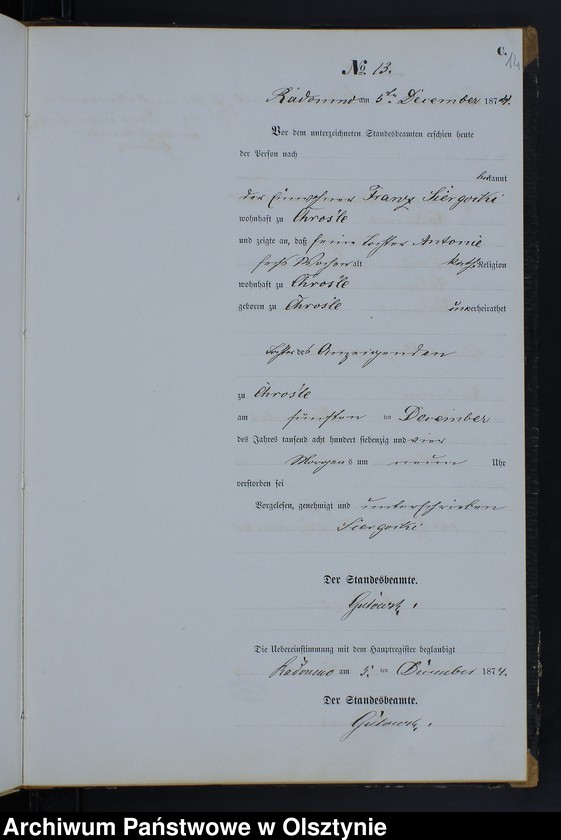 C.
14
No. 13.
Radomno am 5ten December 1874.
Vor dem unterzeichneten Standesbeamten erschien heute
der Person nach
bekannt
der Einwohner Franz
wohnhaft zu Chrośle
und zeigte an, daß seine Tochter Antonie
sechs Wochen alt kath. Religion
wohnhaft zu Chrośle
geboren zu Chrośle unverheirathet
Tochter des Anzeigenden
zu Chrośle
am fünften ten December
des Jahres tausend acht hundert siebenzig und vier
Morgens um neun Uhr
verstorben sei
Vorgelesen, genehmigt und unterschrieben
Der Standesbeamte.
Die Uebereinstimmung mit dem Hauptregister beglaubigt
Radomno am 5. ten December 1874.
Der Standesbeamte.
Archiwum Państwowe w Olsztynie